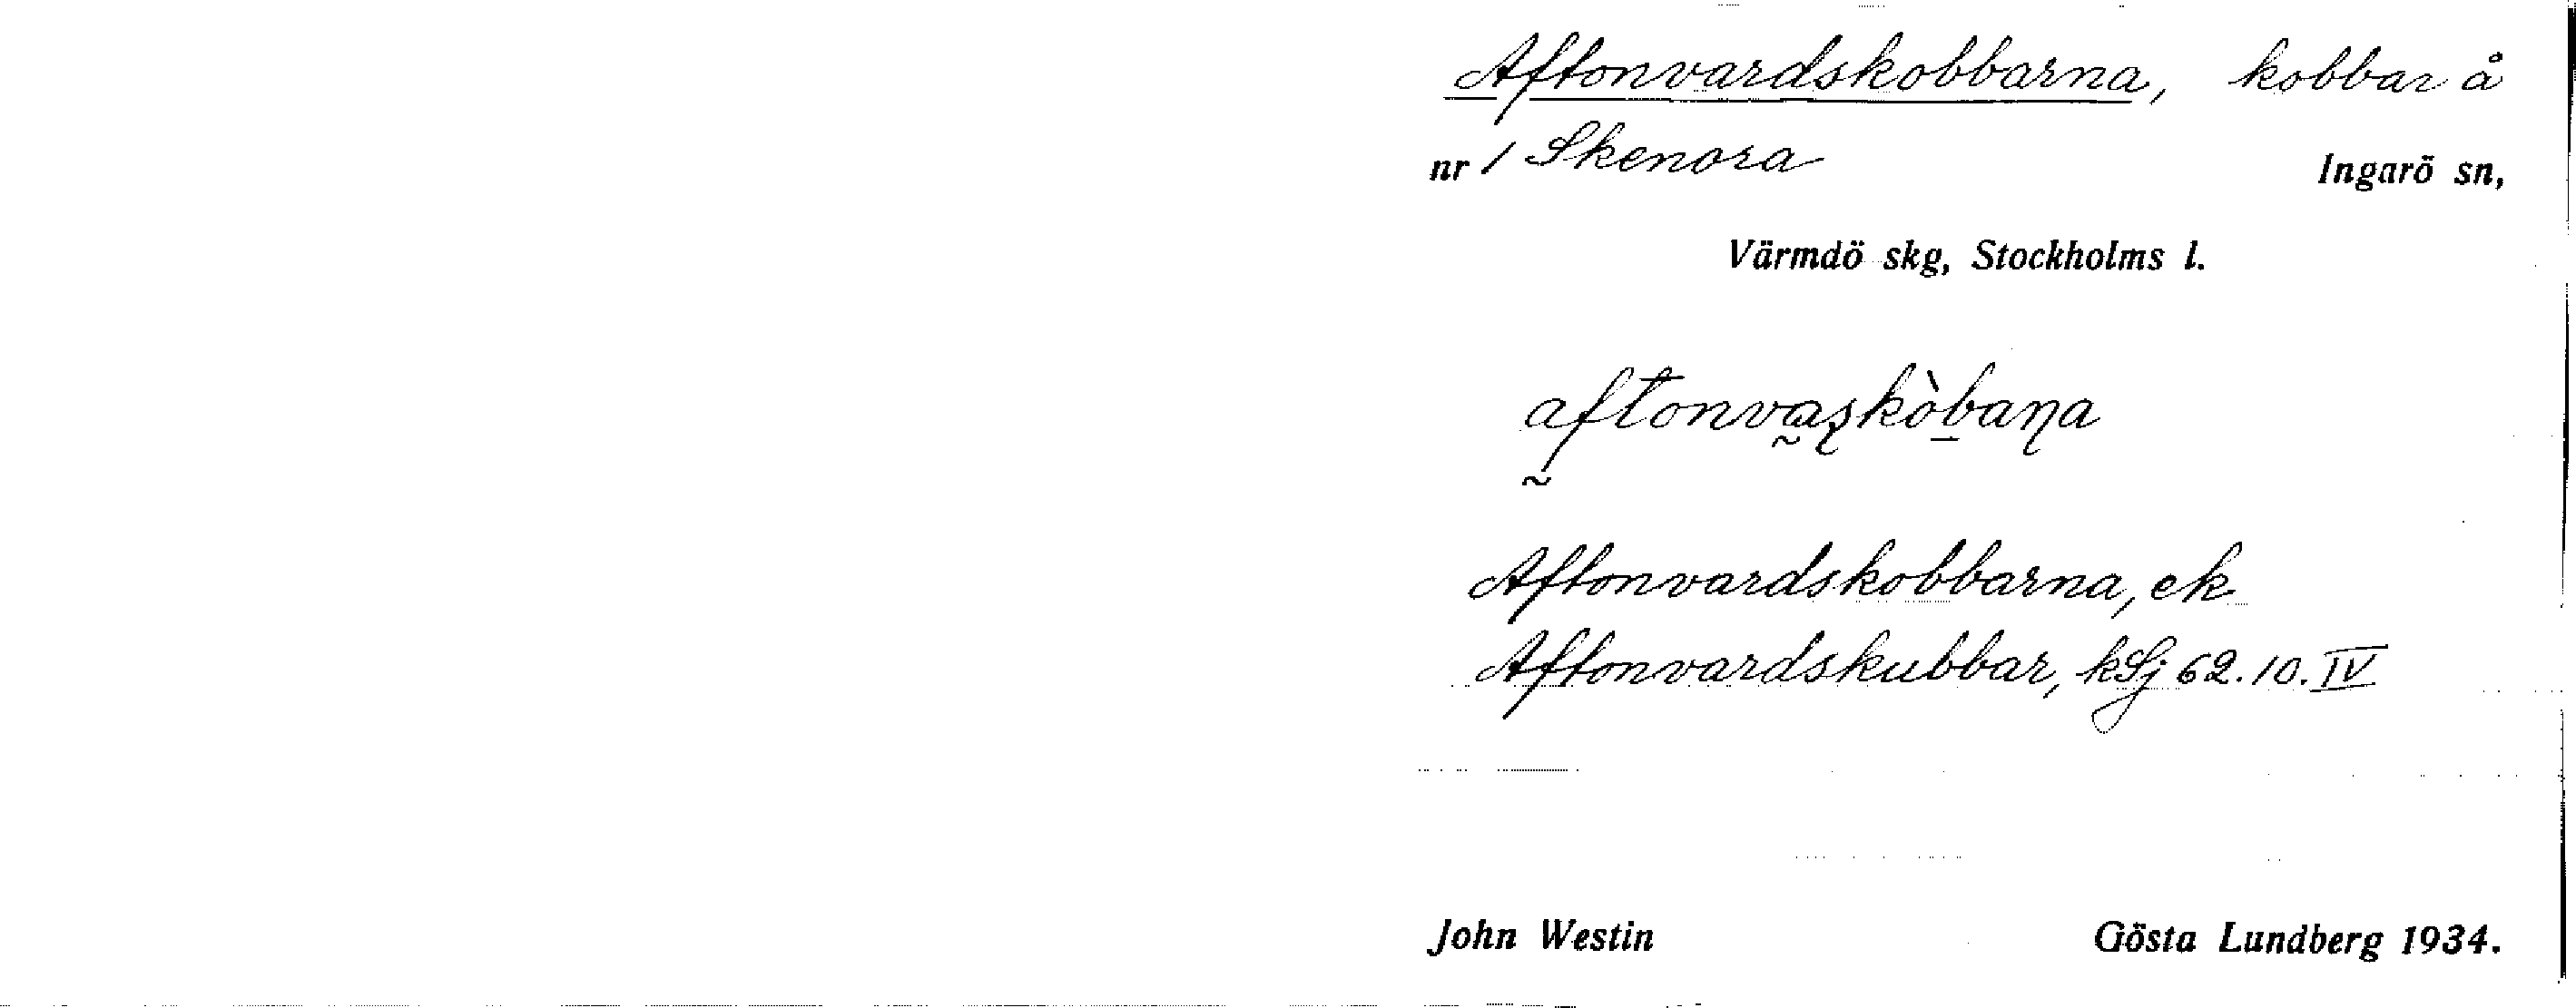 Aftonvardskobbarna, kobbar å
nr 1 Skenora Ingarö sn,
Värmdö skg, Stockholms l.
aftonvaʂkòbaɳa
Aftonvardskobbarna, ek
Aftonvardskubbar, kSj 62.10.IV
John Westin Gösta Lundberg 1934.